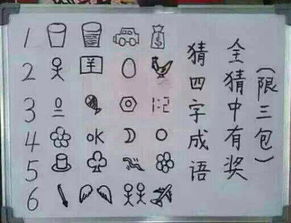 1
2
3
1:2
4
OK
5
6
猜四字成语
全猜中有奖
(限三包)